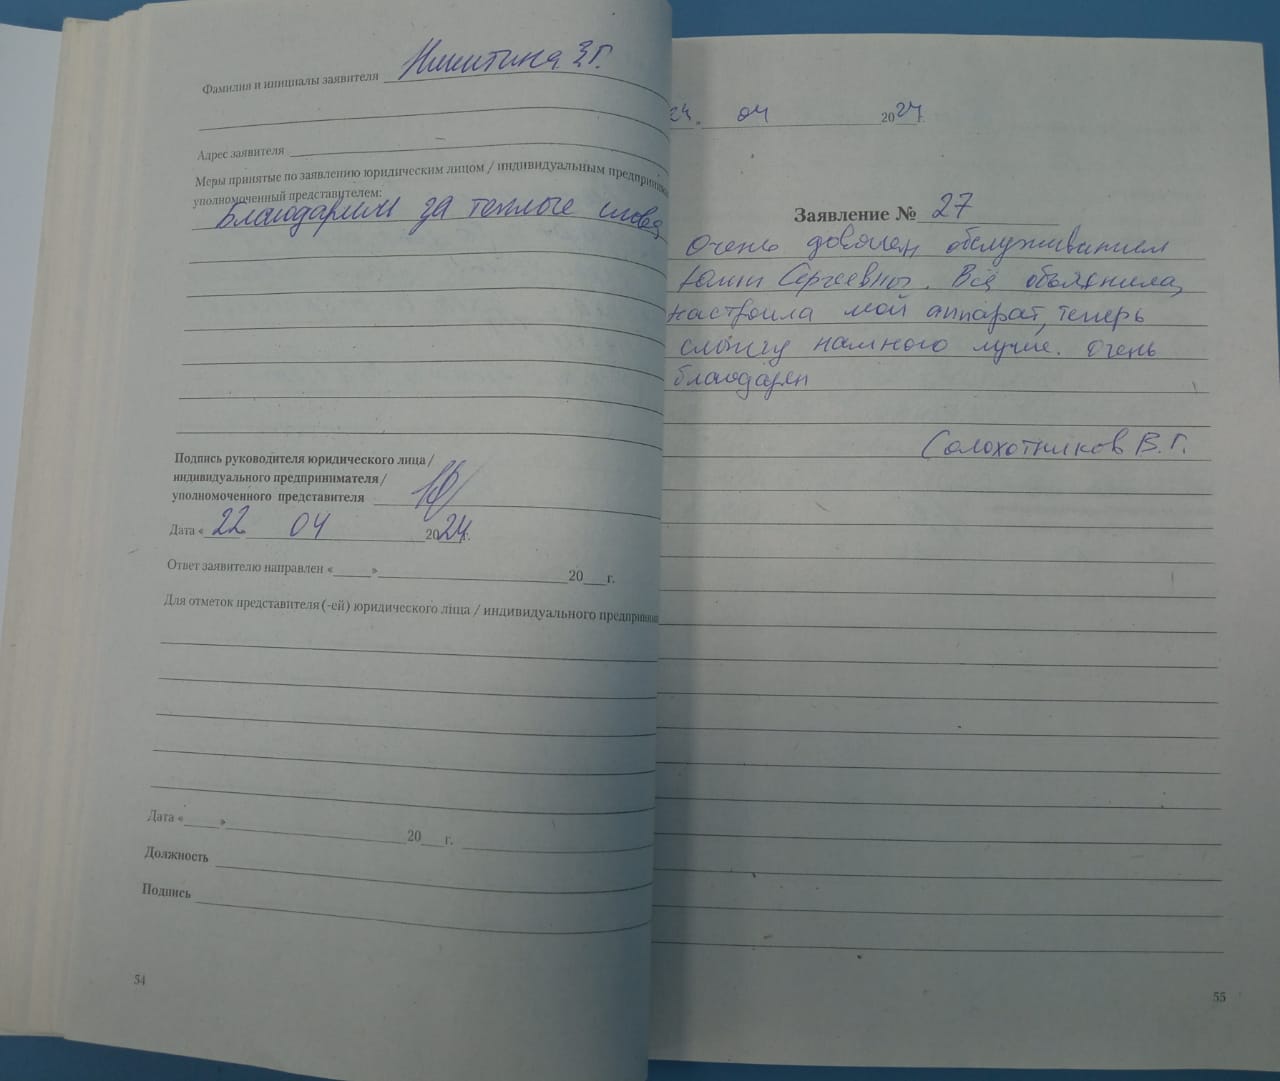 Фамилия и инициалы заявителя Никитина З.Г.
Адрес заявителя –
Меры принятые по заявлению юридическим лицом / индивидуальным предприни
уполномоченный представителем:
Благодарим за теплые слова
Подпись руководителя юридического лица /
индивидуального предпринимателя /
уполномоченного представителя
Дата « 22 04 2024г.
Ответ заявителю направлен «____»____ 20___г.
Для отметок представителя (-ей) юридического лица / индивидуального предприни
Дата «____»____ 20___г.
Должность
Подпись
54
24. 04 2024
Заявление № 27
Очень доволен обслуживанием
Юлии Сергеевны. Всё объяснила,
настроила мой аппарат, теперь
слышу намного лучше. Очень
благодарен
Солохотников В.Г.
55